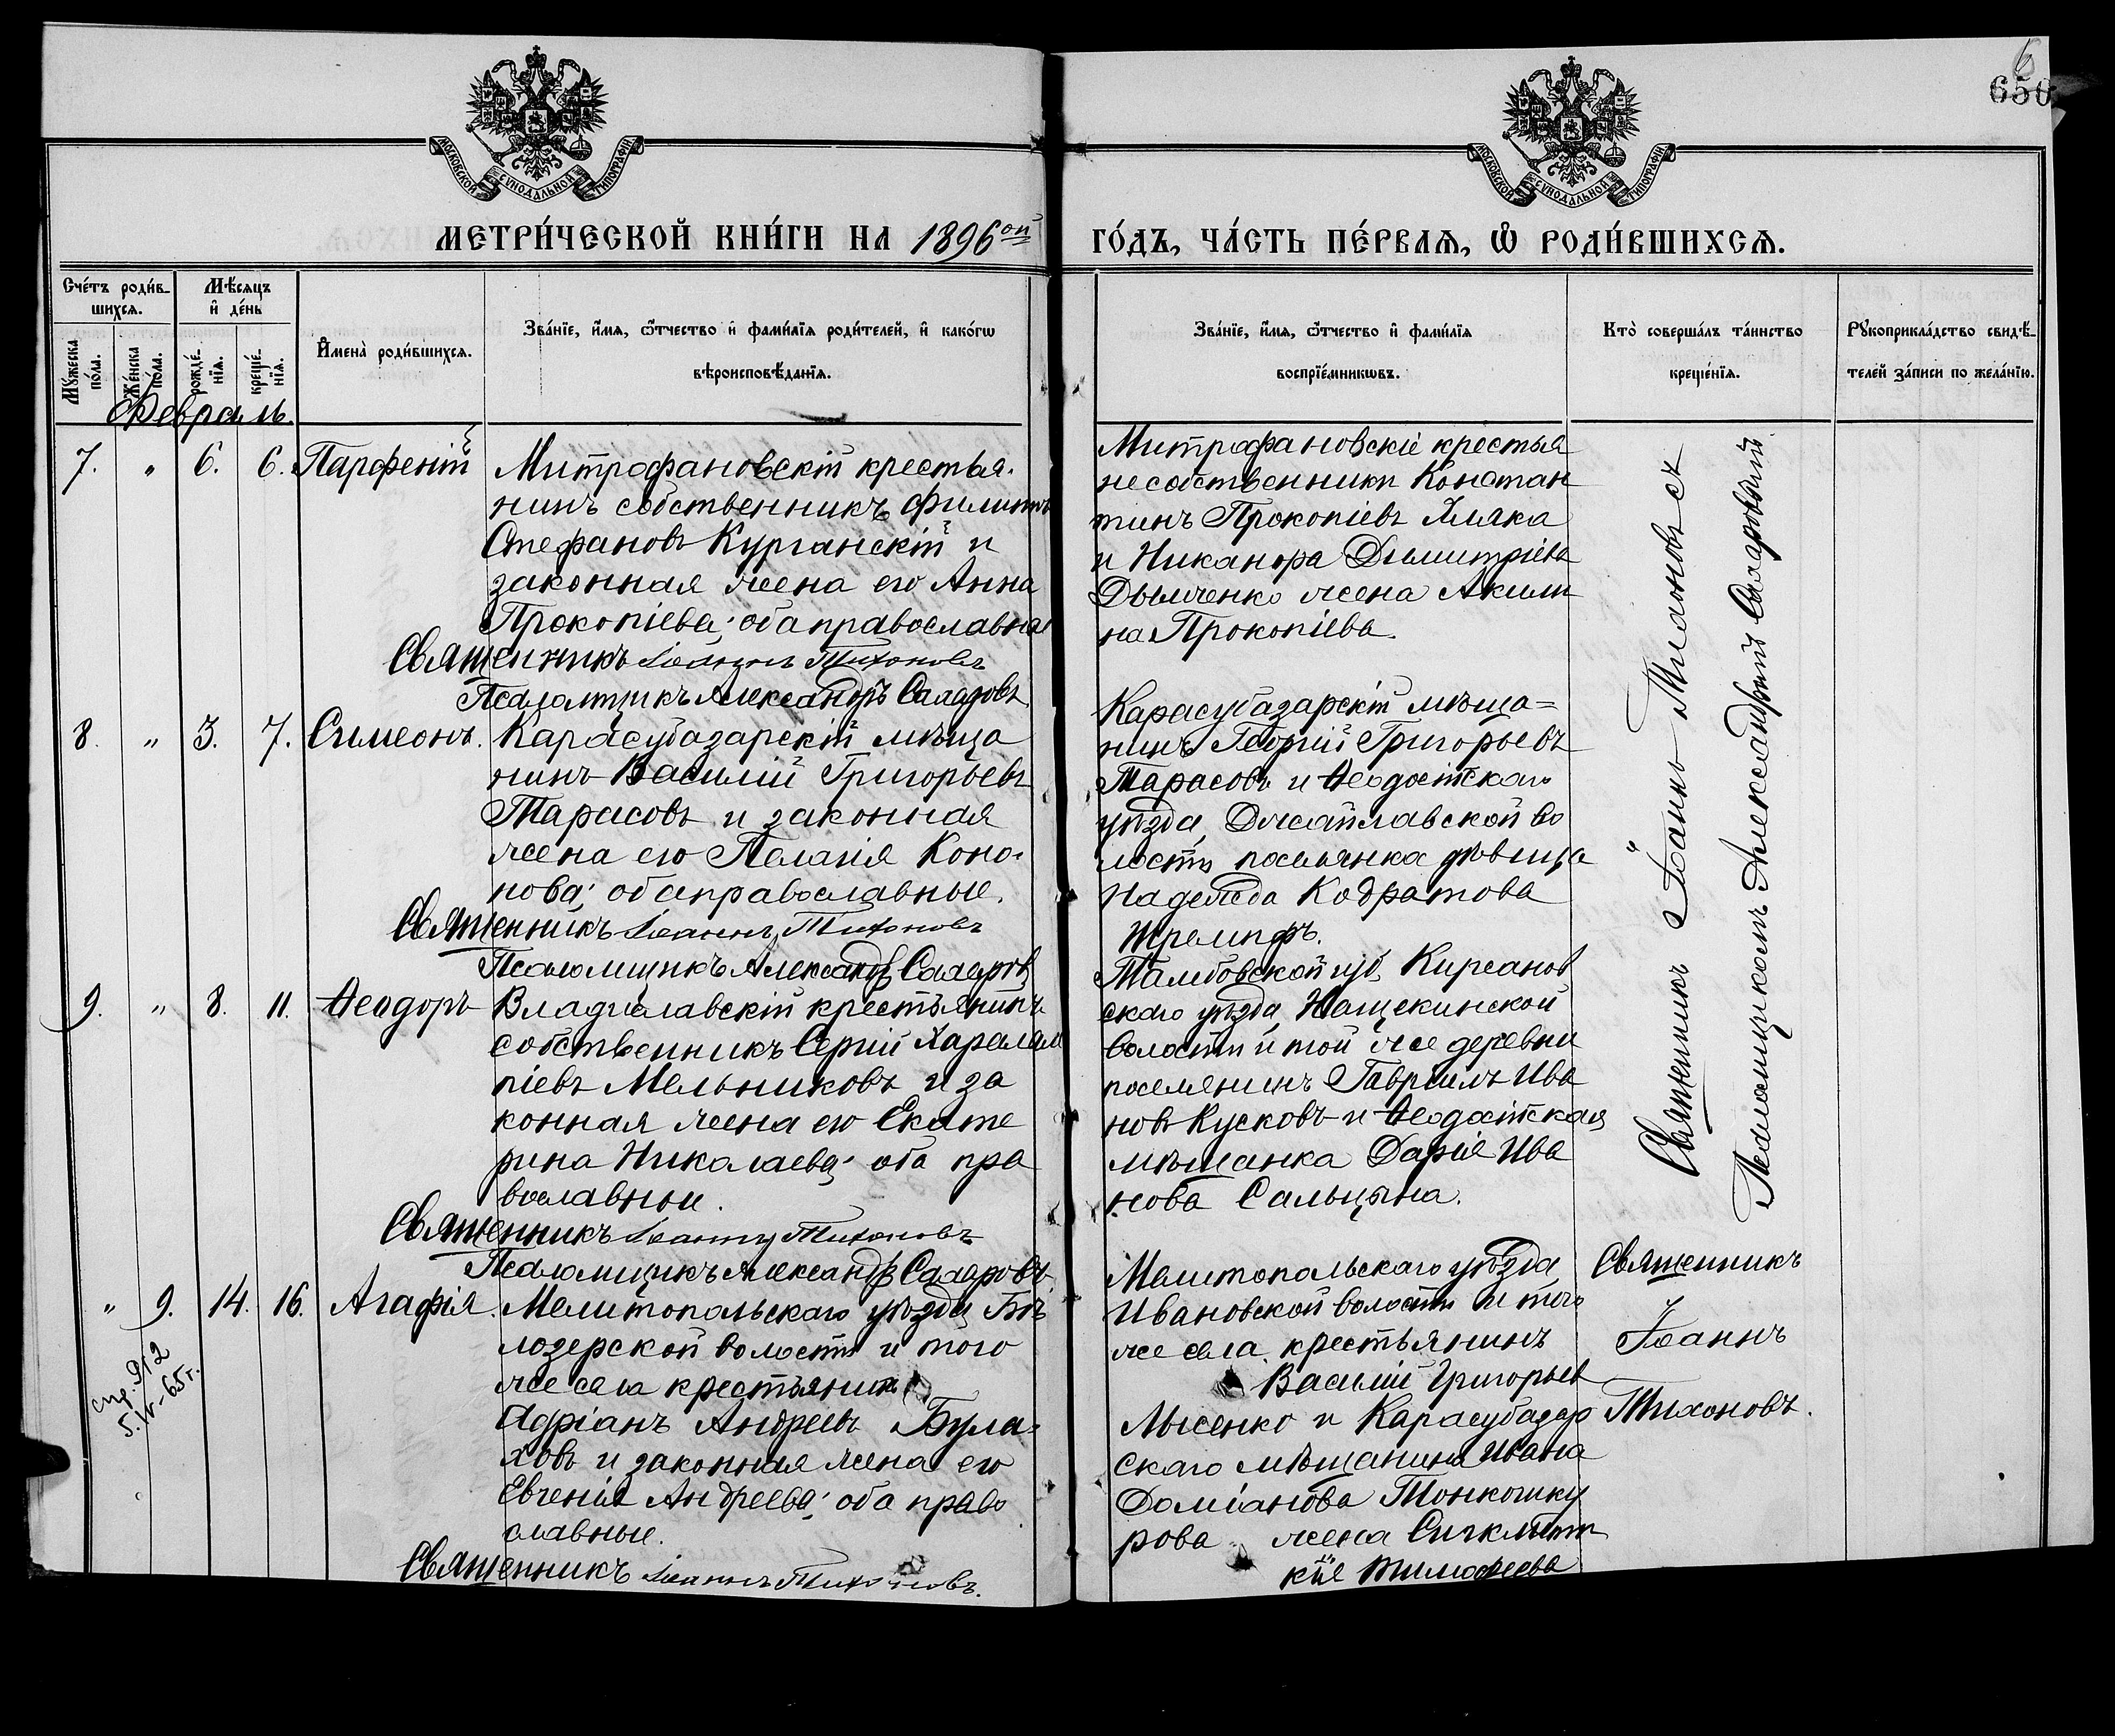 6
650
МОСКОВСКОЙ СУНОДАЛЬНОЙ ТИПОГРАФІИ
МОСКОВСКОЙ СУНОДАЛЬНОЙ ТИПОГРАФІИ
МЕТРИ́ЧЕСКОЙ КНИ́ГИ НА 1896ой
ГО́ДЪ, ЧА́СТЬ ПЕ́РВАЯ, Ѽ РОДИ́ВШИХСЯ.
Сче́тъ роди́в-
шихся.
Мѣ́сяцъ
и де́нь
Мꙋжеска
по́ла.
Же́нска
по́ла.
рожде́-
нїя.
креще́-
нїя.
Имена̀ роди́вшихся.
Зва́нїе, и́мя, ѻ́тчество и фами́лїя роди́телей, и како́гѡ
вѣроисповѣ́данїя.
Зва́нїе, и́мя, ѻ́тчество и фами́лїя
воспрїе́мникѡвъ.
Кто̀ соверша́лъ та́инство
креще́нїя.
Рꙋкоприкла́дство свидѣ́-
телей за́писи по жела́нїю.
Февраль.
7. " 6. 6. Парфеній
Митрофановскій крестья-
нинъ собственникъ Филиппъ
Стефановъ Курганскій и
законная жена его Анна
Прокопіева; оба православные
Священникъ Іоаннъ Тихоновъ
Псаломщикъ Александръ
Митрофановскіе крестья
не собственники Констан
тинъ Прокопіевъ
и Никанора Димитріева
Дымченко жена Акили
на Прокопіева.
8. " 3. 7. Симеонъ.
Карасубазарскій мѣща
нинъ Василій Григорьевъ
Тарасовъ и законная
жена его Пелагія Коно-
нова; оба православные.
Священникъ Іоаннъ Тихоновъ
Псаломщикъ Александръ
Карасубазарскій мѣща=
нинъ Георгій Григорьевъ
Тарасовъ и Ѳеодосійскаго
уѣзда, Джайлавской во
лости поселянка дѣвица
Надежда Кодратова
Штремпфъ.
9. " 8. 11. Ѳеодоръ
Владиславскій крестьянинъ
собственникъ Сергій Харалам
піевъ Мельниковъ и за
конная жена его Екате
рина Николаева; оба пра
вославные.
Священникъ Іоаннъ Тихоновъ
Псаломщикъ Александръ
Тамбовской губ, Кирсанов
скаго уѣзда, Нащекинской
волости и той же деревни
поселянинъ Гавріилъ Ива
новъ Кусковъ и Ѳеодосійская
мѣщанка Дарія Ива
нова Сальцына.
Священникъ Іоаннъ Тихоновъ съ
Псаломщикомъ Александромъ
" 9. 14. 16. Агафія.
5.IV-65г.
Мелитопольскаго уѣзда, Бѣ
лозерской волости и того
же села крестьянинъ
Адріанъ Андреевъ Була-
ховъ и законная жена его
Евгенія Андреева; оба право
славные.
Священникъ Іоаннъ Тихоновъ.
Мелитопольскаго уѣзда,
Ивановской волости и того
же села крестьянинъ
Василій Григорьев
Лысенко и Карасубазар
скаго мѣщанина Ивана
Доміанова Тонкошку
рова жена
кія Тимофеева
Священникъ
Іоаннъ
Тихоновъ.